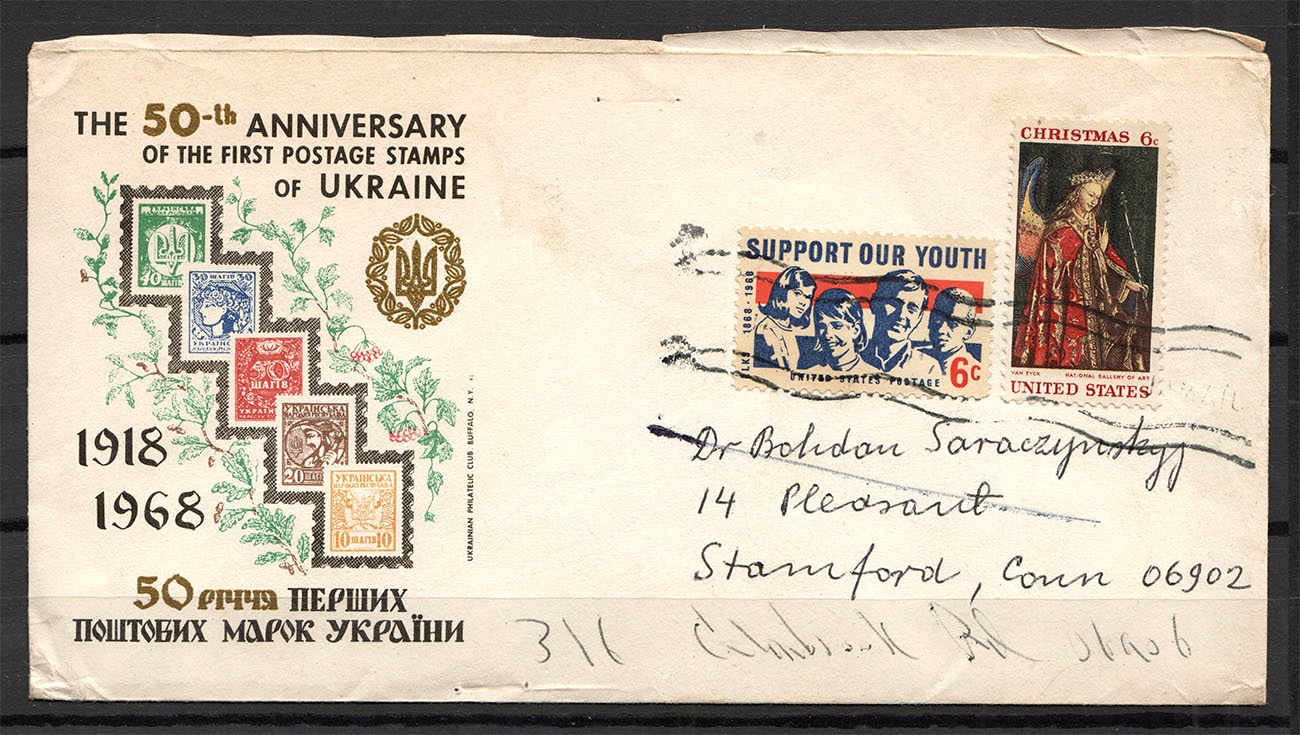 THE 50-th ANNIVERSARY
OF THE FIRST POSTAGE STAMPS
OF UKRAINE
УКРАЇНСЬКА
40 ШАГІВ
30 ШАГІВ 30
50
ШАГІВ
УКРАЇНСЬКА
20 ШАГІВ
УКРАЇНСЬКА
НАРОДНЯ РЕСПУБЛІКА
10 ШАГІВ 10
1918
1968
50 річчя ПЕРШИХ
ПОШТОВИХ МАРОК УКРАЇНИ
UKRAINIAN PHILATELIC CLUB. BUFFALO, N.Y.
SUPPORT OUR YOUTH
ELKS 1868·1968
UNITED STATES POSTAGE 6c
CHRISTMAS 6c
VAN EYCK NATIONAL GALLERY OF ART
UNITED STATES
Dr Bohdan Saraczynskyj
14 Pleasant
Stamford, Conn 06902
316 Rd 06906